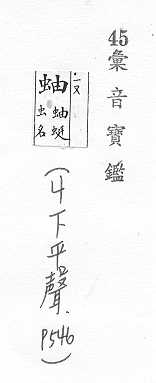 45彙音寶鑑
ㄧㄡ
蚰
蚰蜓
虫名
(4下平聲.P546)